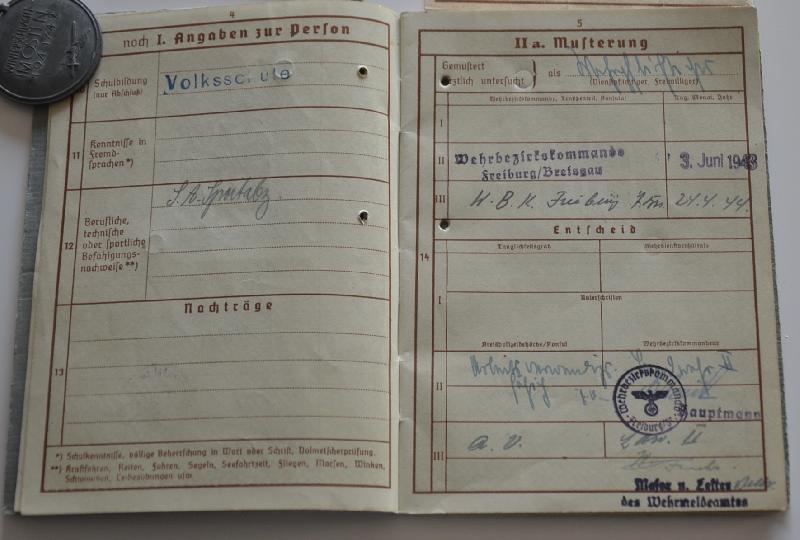 4
noch I. Angaben zur Person
Schulbildung
(nur Abschluß)
Volksschule
11
Kenntnisse in
Fremd-
sprachen*)
12
Berufliche,
technische
oder sportliche
Befähigungs-
nachweise**)
S.A. Sportabz.
Nachträge
13
*) Schulkenntnisse, völlige Beherrschung in Wort oder Schrift, Dolmetscherprüfung.
**) Kraftfahren, Reiten, Fahren, Segeln, Seefahrtzeit, Fliegen, Morsen, Winken,
Schwimmen, Leibesübungen usw.
5
II a. Musterung
Gemustert
ärztlich untersucht
als
(Dienstpflichtiger, Freiwilliger)
Tag, Monat, Jahr
I
II
Wehrbezirkskommando
Freiburg/Breisgau
3. Juni 1943
III
W. B. K. Freiburg
24.4.44.
Entscheid
14
Tauglichkeitsgrad
Wehrdienstverhältnis
I
Unterschriften
Kreispolizeibehörde/Konsul
Wehrbezirkskommandeur
II
II
Wehrbezirkskommando
Hauptmann
III
a. v.
II
Major u. Leiter
des Wehrmeldeamtes